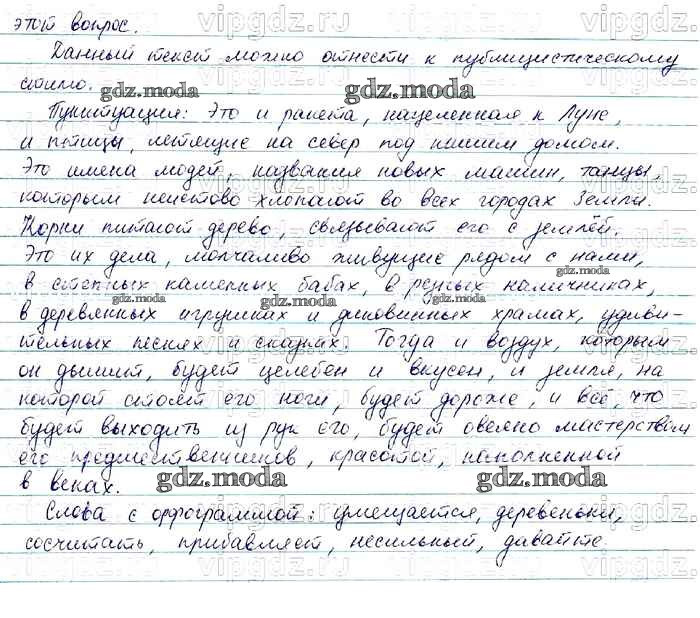 этот вопрос.
Данный текст можно отнести к публицистическому
стилю.
Пунктуация: Это и ракета, нацеленная к Луне,
и птицы, летящие на север под нашим домом.
Это имена людей, названия новых машин, танцы,
которым неистово хлопают во всех городах Земли.
Корни питают дерево, связывают его с землёй.
Это их дела, молчаливо живущие рядом с нами,
в степных каменных бабах, в резных наличниках,
в деревянных игрушках и диковинных храмах, удиви-
тельных песнях и сказках. Тогда и воздух, которым
он дышит, будет целебен и вкусен, и земля, на
которой стоят его ноги, будет дороже, и всё, что
будет выходить из рук его, будет овеяно мастерством
его предшественников, красотой, накопленной
в веках.
Слова с орфограммой: умещается, деревеньки,
сосчитать, прибавляет, несильный, давайте.
gdz.moda
vipgdz.ru